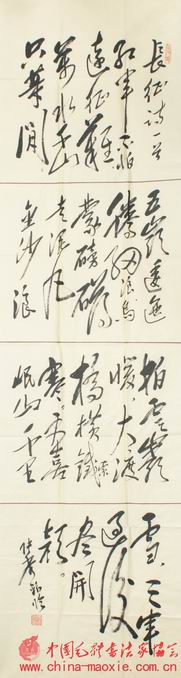 長征詩一首
紅軍不怕
遠征難
萬水千山
只等閒
五嶺逶迤
騰細浪烏
蒙磅礴
走泥丸
金沙浪
拍雲崖
暖大渡
橋橫鐵索
寒更喜
岷山千里
雪三軍
過後
盡開
顏
中國毛體書法家協會
www.china-maoxie.com.cn